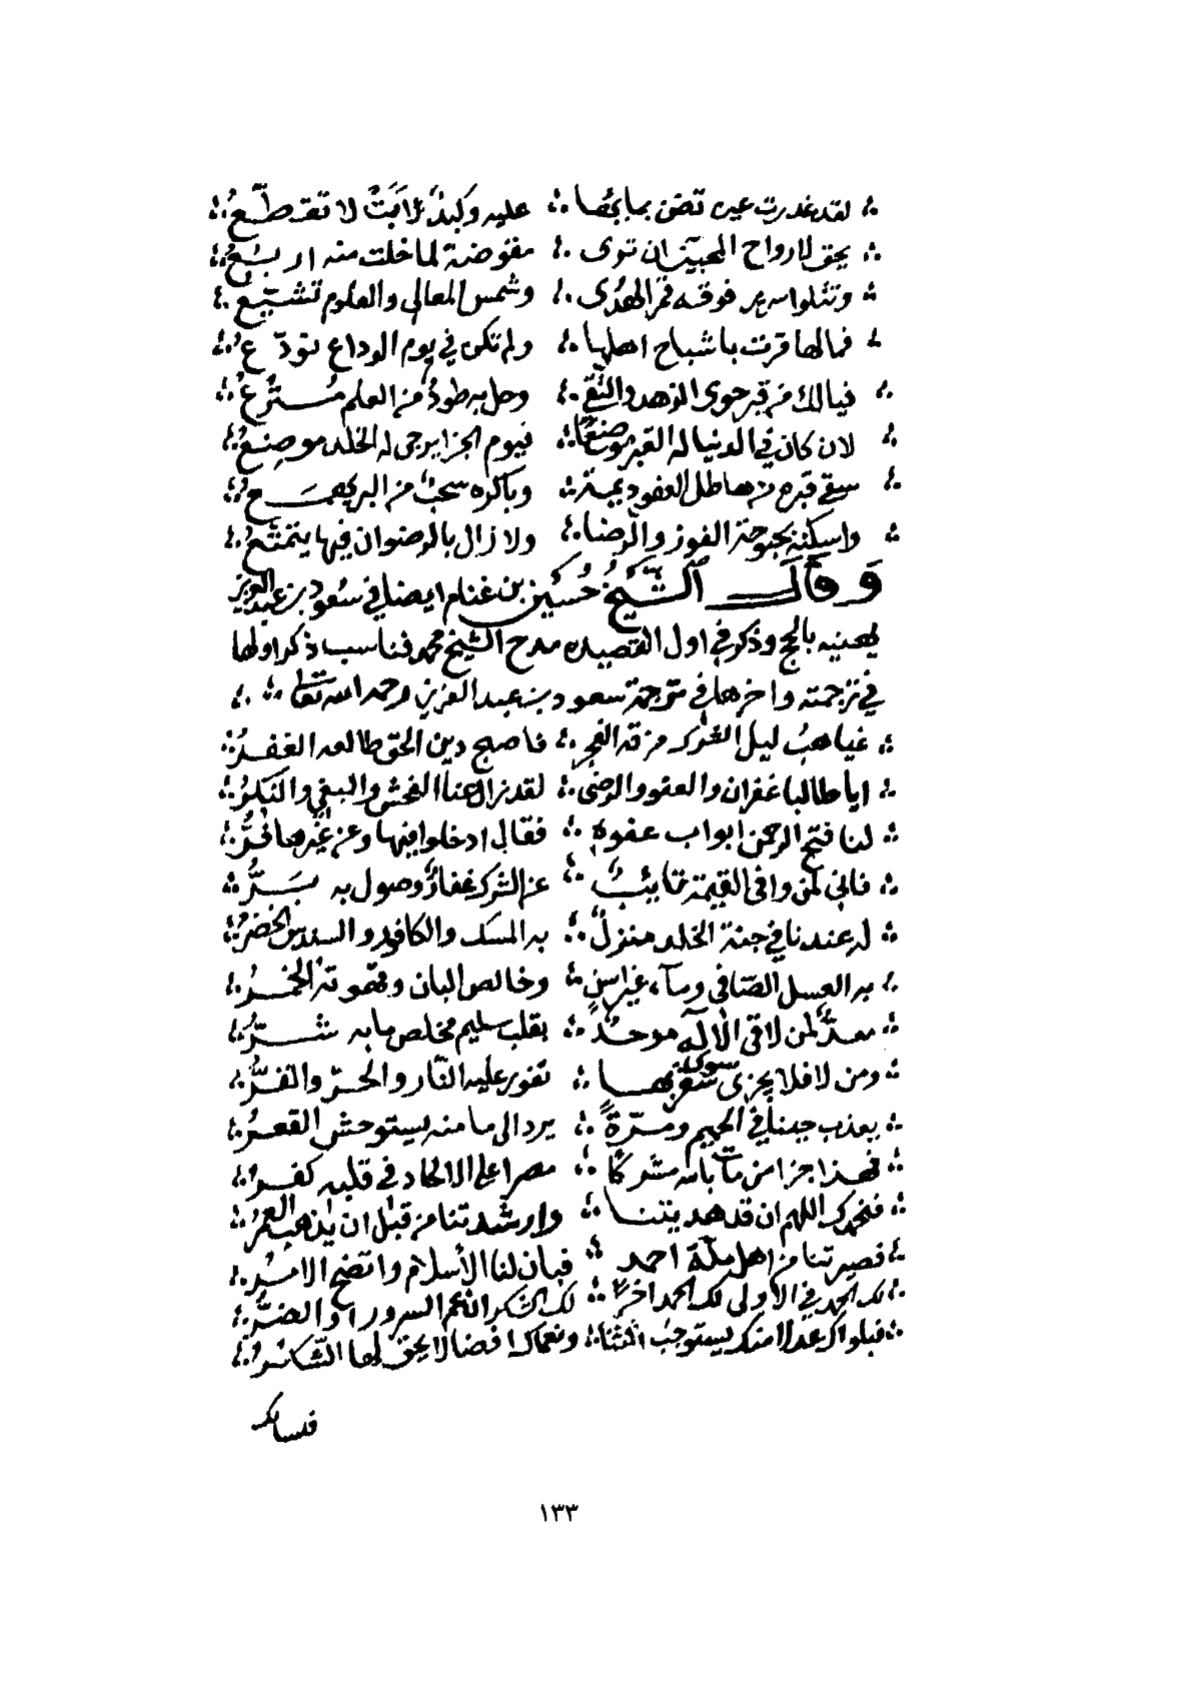 لقد غدرت عين تضن بمائها ∴ عليه وكبد لا تقطع
يحق لارواح المحبين ان ترى ∴ مقوضة لما خلت منه اربع
وتتلوا سرير فوقه قمر الهدى ∴ وشمس المعالى والعلوم تشيع
فمالها قرت باشباح اهلها ∴ ولم تكن في يوم الوداع تودع
فيالك من قبر حوى الزهد والتقى ∴ وحل به طود من العلم مترع
لان كان في الدنيا له القبر موضعا ∴ فيوم الجزا يرجى له الخلد موضع
سقى قبره من هاطل العفو ديمة ∴ وباكره سحب من البر يهمع
واسكنه بحبوحة الفوز والرضا ∴ ولا زال بالرضوان فيها يتمتع
وقال الشيخ حسين بن غنام ايضا في سعود بن عبد العزيز
يهنيه بالحج وذكر في اول القصيده مدح الشيخ محمد فناسب ذكر اولها
في ترجمته واخرها في ترجمة سعود بن عبد العزيز رحمه الله تعالى ∴
غياهب ليل الشرك مزقه الفجر ∴ فاصبح دين الحق طالعه الغفر
ايا طالبا غفران والعفو والرضى ∴ لقد زال عنا الفحش والبغي والنكر
لنا فتح الرحمن ابواب عفوه ∴ فقال ادخلوا فيها وعن غيرها فروا
فاني لمن وافى القيمة تائب ∴ عن الشرك غفار وصول به بر
له عندنا في جنة الخلد منزل ∴ به المسك والكافور والسندس الخضر
به العسل الصافى ومآء غير اسن ∴ وخالص البان وقهوته الخمر
معد لمن لاقى الآله موحد ∴ بقلب سليم مخلص ما به شر
ومن لا فلا يجزى سوى ∴ تفور عليه النار والحر والقر
يعذب حينا في الحميم ومرة ∴ يرد الى ما منه يستوحش القعر
فهذا جزا من مآت بالله مشركا ∴ مصرا على الالحاد في قلبه كفر
فنحمدك اللهم ان قد هديتنا ∴ وارشدتنا من قبل ان يذهب العمر
فصيرتنا من اهل ملة احمد ∴ فبان لنا الأسلام واتضح الامر
لك الحمد في الاولى لك الحمد اخرا ∴ لك الشكر ان عم السرور او الضر
فبلواك عدلا منك يستوجب الثنا ∴ ونعماك افضالا يحق لها الشكر
فسالك
١٣٣